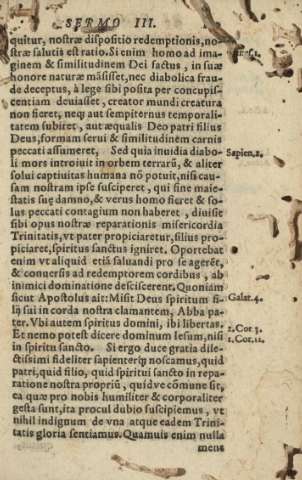 SERMO III.
quitur, nostræ dispositio redemptionis, no-
stræ salutis est ratio. Si enim homo ad ima-
ginem & similitudinem Dei factus, in suæ
honore naturæ māsisset, nec diabolica frau-
de deceptus, à lege sibi posita per concupis-
centiam deuiasset, creator mundi creatura
non fieret, neq; aut sempiternus temporali-
tatem subiret, aut æqualis Deo patri filius
Deus, formam serui & similitudinem carnis
peccati assumeret. Sed quia inuidia diabo-
Sapien. 2.
li mors introiuit in orbem terrarū, & aliter
solui captiuitas humana nō potuit, nisi cau-
sam nostram ipse susciperet, qui sine maie-
statis suę damno, & verus homo fieret & so-
lus peccati contagium non haberet, diuisit
sibi opus nostræ reparationis misericordia
Trinitatis, vt pater propiciaretur, filius pro-
piciaret, spiritus sanctus igniret. Oportebat
enim vt aliquid etiā saluandi pro se agerēt,
& conuersis ad redemptorem cordibus, ab
inimici dominatione desciscerent. Quoniam
sicut Apostolus ait: Misit Deus spiritum fi-
Galat. 4.
lij sui in corda nostra clamantem, Abba pa-
ter. Vbi autem spiritus domini, ibi libertas.
2. Cor. 3.
Et nemo potest dicere dominum Iesum, nisi
1. Cor. 12.
in spiritu sancto. Si ergo duce gratia dile-
ctissimi fideliter sapienterq; noscamus, quid
patri, quid filio, quid spiritui sancto in repa-
ratione nostra propriū, quidve cōmune sit,
ea quæ pro nobis humiliter & corporaliter
gesta sunt, ita procul dubio suscipiemus, vt
nihil indignum de vna atque eadem Trini-
tatis gloria sentiamus. Quamuis enim nulla
mens